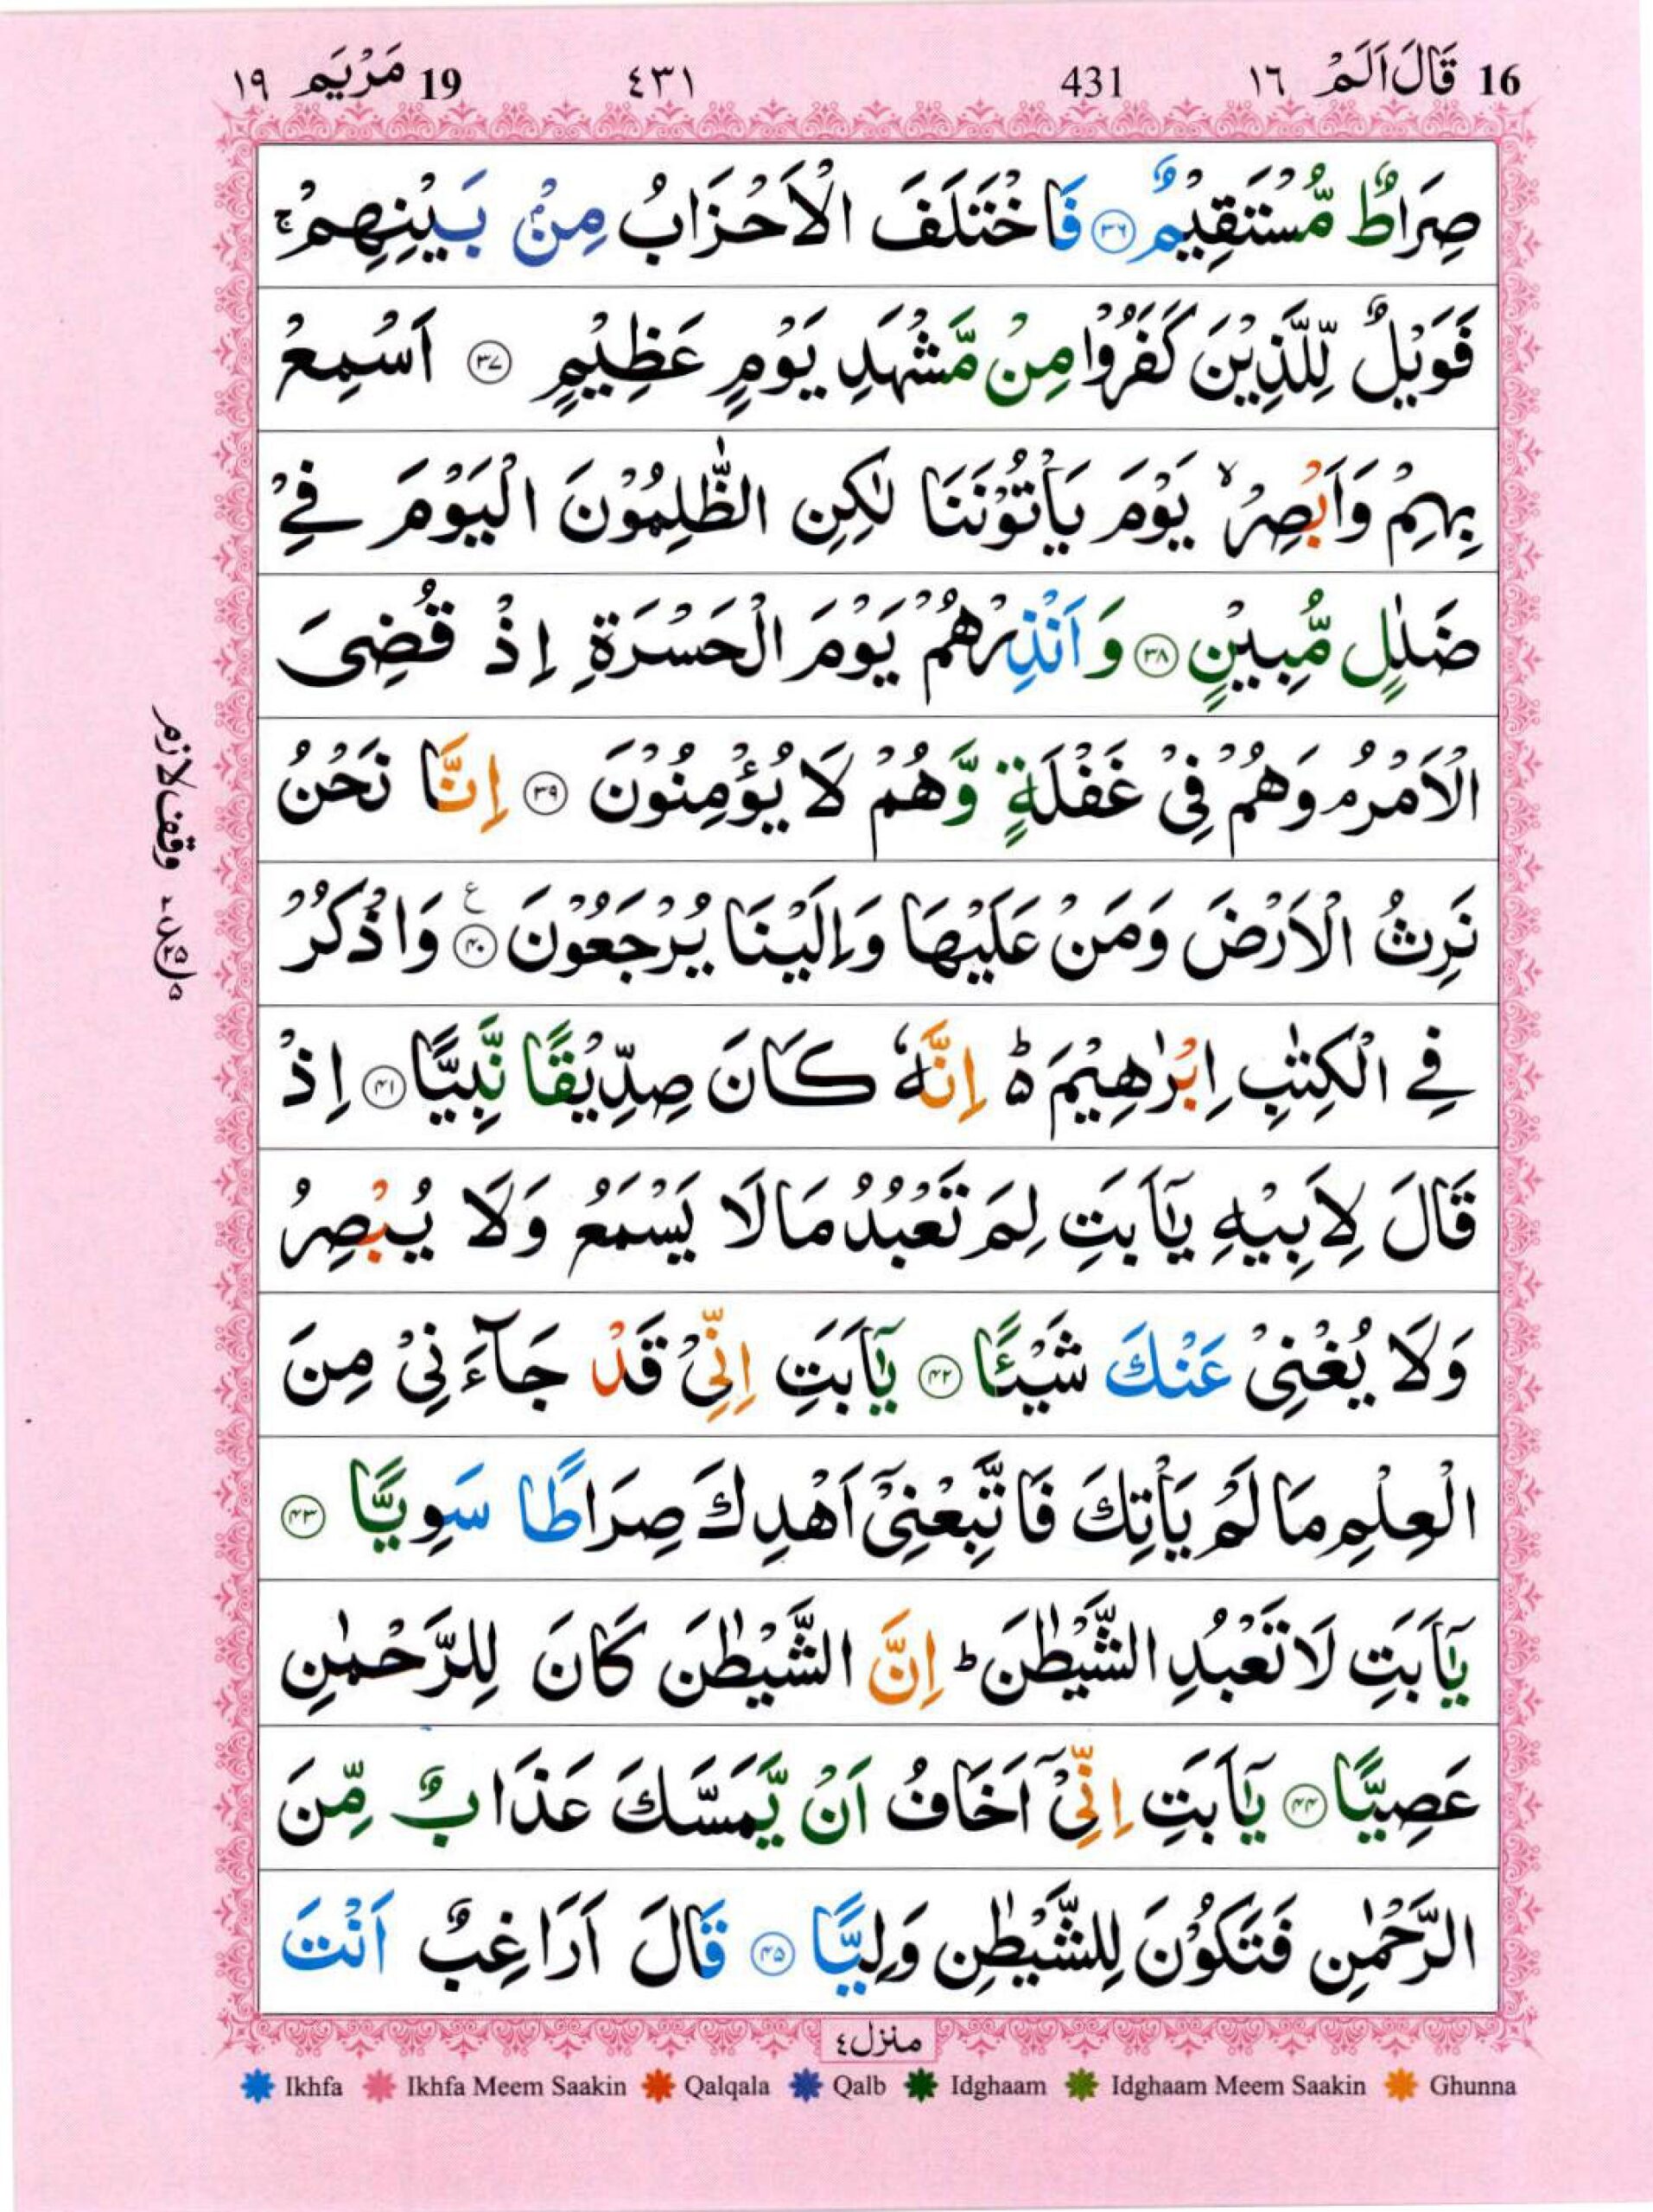 16 قَالَ اَلَمْ ١٦ 431 ٤٣١ 19 مَرْيَم ١٩
صِرَاطٌ مُّسْتَقِيْمٌ ۝۳۶ فَاخْتَلَفَ الْاَحْزَابُ مِنْۢ بَيْنِهِمْ ۚ
فَوَيْلٌ لِّلَّذِيْنَ كَفَرُوْا مِنْ مَّشْهَدِ يَوْمٍ عَظِيْمٍ ۝۳۷ اَسْمِعْ
بِهِمْ وَاَبْصِرْ ۙ يَوْمَ يَاْتُوْنَنَا لٰكِنِ الظّٰلِمُوْنَ الْيَوْمَ فِيْ
ضَلٰلٍ مُّبِيْنٍ ۝۳۸ وَاَنْذِرْهُمْ يَوْمَ الْحَسْرَةِ اِذْ قُضِىَ
الْاَمْرُ ۘ وَهُمْ فِيْ غَفْلَةٍ وَّهُمْ لَا يُؤْمِنُوْنَ ۝۳۹ اِنَّا نَحْنُ
نَرِثُ الْاَرْضَ وَمَنْ عَلَيْهَا وَاِلَيْنَا يُرْجَعُوْنَ ۝۴۰ ع وَاذْكُرْ
فِي الْكِتٰبِ اِبْرٰهِيْمَ ۥؕ اِنَّهٗ كَانَ صِدِّيْقًا نَّبِيًّا ۝۴۱ اِذْ
قَالَ لِاَبِيْهِ يٰۤاَبَتِ لِمَ تَعْبُدُ مَا لَا يَسْمَعُ وَلَا يُبْصِرُ
وَلَا يُغْنِيْ عَنْكَ شَيْـًٔا ۝۴۲ يٰۤاَبَتِ اِنِّيْ قَدْ جَآءَنِيْ مِنَ
الْعِلْمِ مَا لَمْ يَاْتِكَ فَاتَّبِعْنِيْۤ اَهْدِكَ صِرَاطًا سَوِيًّا ۝۴۳
يٰۤاَبَتِ لَا تَعْبُدِ الشَّيْطٰنَ ؕ اِنَّ الشَّيْطٰنَ كَانَ لِلرَّحْمٰنِ
عَصِيًّا ۝۴۴ يٰۤاَبَتِ اِنِّيْۤ اَخَافُ اَنْ يَّمَسَّكَ عَذَابٌ مِّنَ
الرَّحْمٰنِ فَتَكُوْنَ لِلشَّيْطٰنِ وَلِيًّا ۝۴۵ قَالَ اَرَاغِبٌ اَنْتَ
وقف لازم
منزل٤
Ikhfa Ikhfa Meem Saakin Qalqala Qalb Idghaam Idghaam Meem Saakin Ghunna